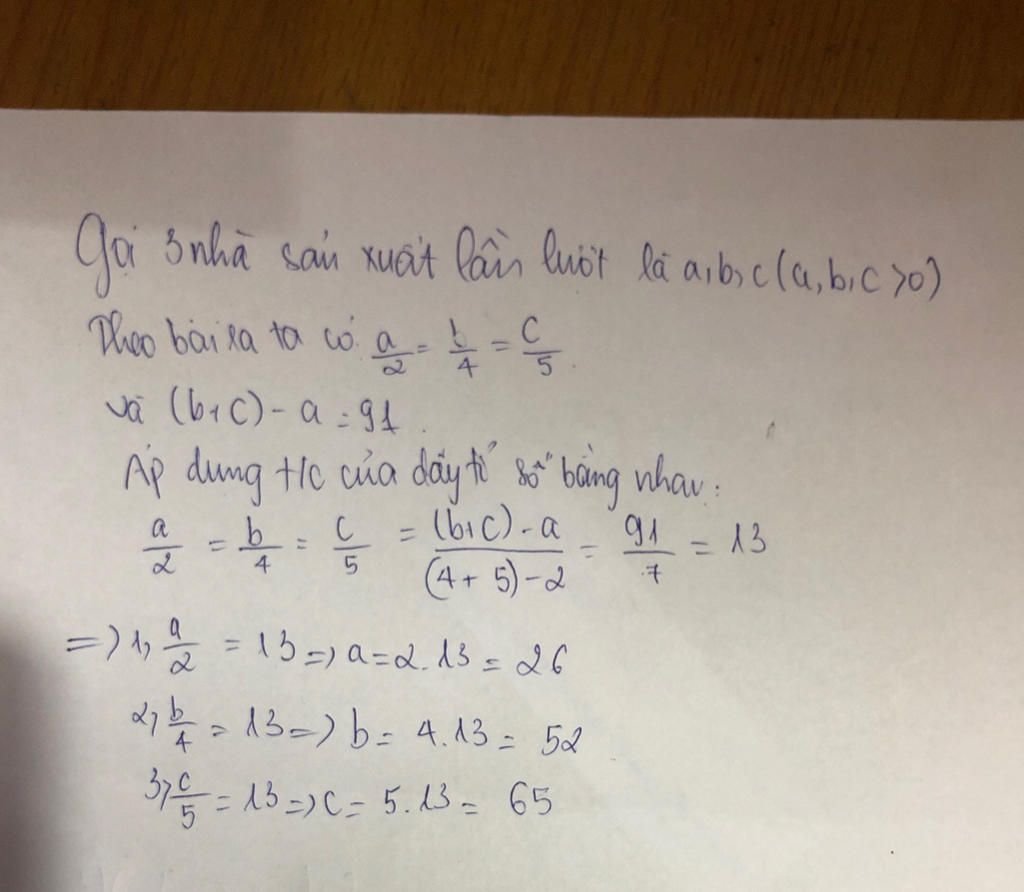 Gọi 3 nhà sản xuất lần lượt là a, b, c (a, b, c >0)
Theo bài ra ta có: a/2 = b/4 = c/5.
và (b+c) - a = 91.
Áp dụng t/c của dãy tỉ số bằng nhau:
a/2 = b/4 = c/5 = (b+c) - a/(4+5)-2 = 91/7 = 13
=> 1, a/2 = 13 => a = 2.13 = 26
2, b/4 = 13 => b = 4.13 = 52
3, c/5 = 13 => c = 5.13 = 65